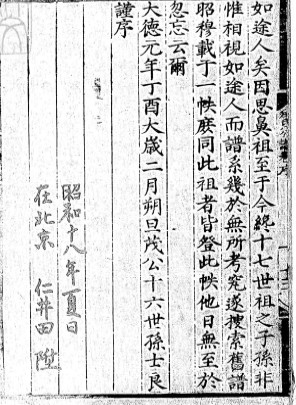 如途人矣因思鼻祖至于今纔十七世祖之子孫非
惟相視如途人而譜系幾於無所考究遂搜索舊譜
昭穆載于一帙庶同此祖者皆登此帙他日無至於
忽忘云爾
大德元年丁酉大歲二月朔旦茂公十六世孫士良
謹序
昭和十八年夏日
在北京 仁井田陞